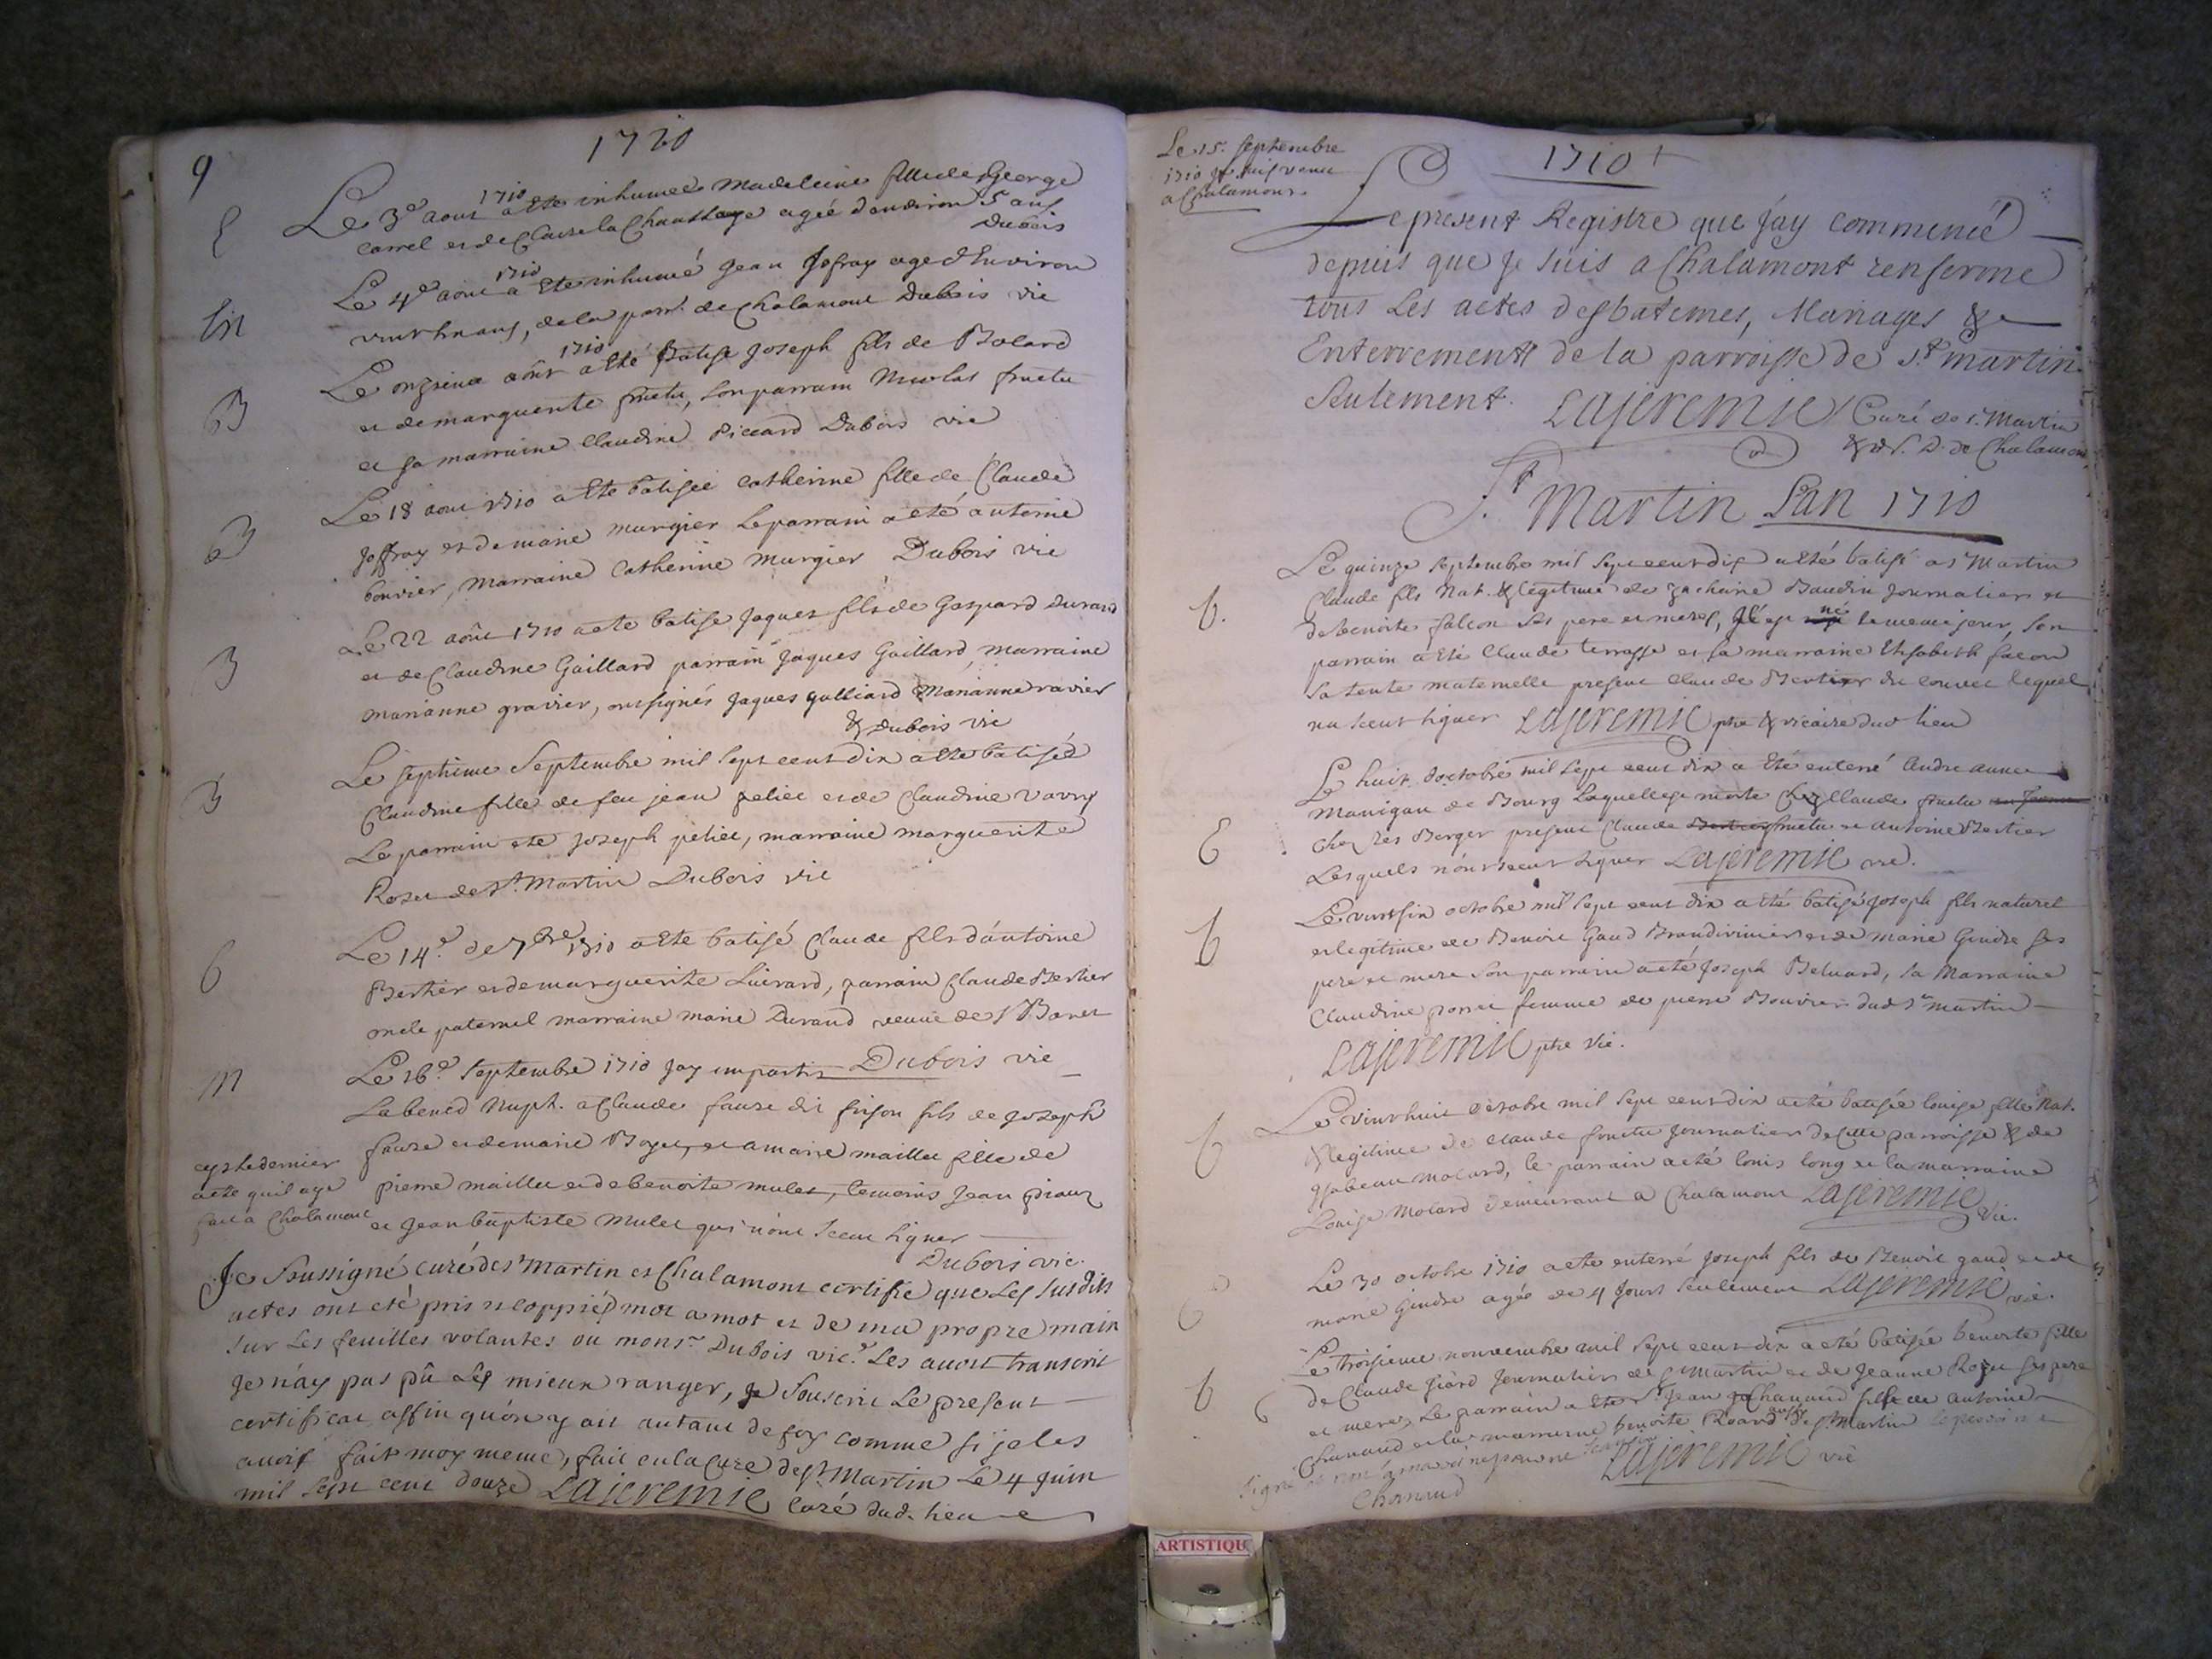 9
1710
E
Le 3e aout 1710 a ete inhumee Madeleine fille de George
carrel et de Claire la Chaussaye agée d'environ 5 ans
Dubois
En
Le 4e aout 1710 a ete inhumé Jean Jofray age d'Environ
vint ans, de la parr. de Chalamont Dubois vic
B
Le onzieme aôut 1710 a eté Batisé Joseph fils de Bolard
et de marguerite fruitu, son parrain Nicolas fruitu
et sa marraine Claudine Piccard Dubois vic
B
Le 18 aout 1710 a ete batisée catherine fille de Claude
Joffray et de marie murgier Le parrain a eté antoine
bouvier, marraine Catherine murgier Dubois vic
B
Le 22 aôut 1710 a ete batisé Jaques fils de Gaspard Durand
et de Claudine Gaillard parrain Jaques Gaillard, marraine
marianne gravier, ont signés Jaques galliard Marianne ravier
& Dubois vic
B
Le septieme Septembre mil sept cent dix a ete batisée
Claudine fille de feu jean peliee et de Claudine
Le parrain ete Joseph peliee, marraine marguerite
Roset de St. Martin Dubois vic
b
Le 14e de 7bre 1710 a ete batisé Claude fils d'antoine
Bertier et de marguerite Luirard, parrain Claude Bertier
oncle paternel marraine marie Durand veuve de
Dubois vic
M
Le 16e Septembre 1710 Jay imparti
La bened Nupt. a Claude faure dit frison fils de Joseph
faure et de marie Boyer, et a marie maillet fille de
pierre maillet et de benoite mulet, temoins Jean
et Jean baptiste Mulet qui n'ont sceu signer
Dubois vic.
cy st le dernier
acte quil aye
fait a Chalamont
Je Soussigné curé de St Martin et Chalamont certifie que Les susdits
actes ont eté pris et coppiés mot a mot et de ma propre main
sur Les feuilles volantes ou monsr Dubois vic.e Les avoit transcrit
Je n'ay pas pû Les mieux ranger, Je Souscrit Le present
certificat affin qu'on y ait autant de foy comme si je les
avois fait moy meme, fait en la Cure de St Martin Le 4 Juin
mil sept cent douze LAJEREMIE Curé dud. lieu
Le 15. Septembre
1710 je suis venu
a Chalamont.
1710
Le present Registre que Jay commencé
depuis que Je suis a Chalamont renferme
tous Les actes des batemes, Mariages &
Enterrements de la parroisse de St. martin
seulement. LAJEREMIE Curé de St. Martin
& de Chalamont
St. Martin L'an 1710
b.
Le quinze septembre mil sept cent dix a eté batisé a St Martin
Claude fils Nat. & legitime de Zacharie Baudin Journalier et
de benoite falcon ses pere et mere, Il est né le meme jour, son
parrain a eté Claude terrasse et sa marraine Elisabeth falcon
sa tente maternelle present Claude Bertier du couvet lequel
na sceut signer LAJEREMIE ptre & vicaire dud lieu
E
Le huit d'octobre mil sept cent dix a eté enterré Andre anne
Manigan de Bourg Laquelle est morte chez Claude fruitu
chez Les Berger present Claude fruitu et antoine Bertier
Lesquels n'ont sceut signer LAJEREMIE vic.
b
Le vint six octobre mil sept cent dix a eté batisé Joseph fils naturel
et legitime de Benoit Gaud Brandivinier et de marie Gindre ses
pere et mere son parrain a eté Joseph Beluard, sa Marraine
Claudine femme de pierre Bouvier dud St martin
LAJEREMIE ptre vic.
b
Le vint huit octobre mil sept cent dix a eté batisée louise fille Nat.
& legitime de Claude fruitu Journalier de cette parroisse & de
ysabeau molard, le parrain a eté louis long et la marraine
Louise Molard demeurant a Chalamont LAJEREMIE Vic.
Le 30 octobre 1710 a ete enterré Joseph fils de Benoit gaud et de
marie Gindre agée de 4 Jours seulement LAJEREMIE vic.
b
Le troisieme nouvembre mil sept cent dix a eté batisée benoite fille
de Claude Journalier de St Martin et de Jeanne ses pere
et mere, Le parrain a ete Sr Jean Chanaud fils de antoine
Chanaud et la marraine benoite aussy de St Martin
LAJEREMIE vic
Chanaud
ARTISTIQU